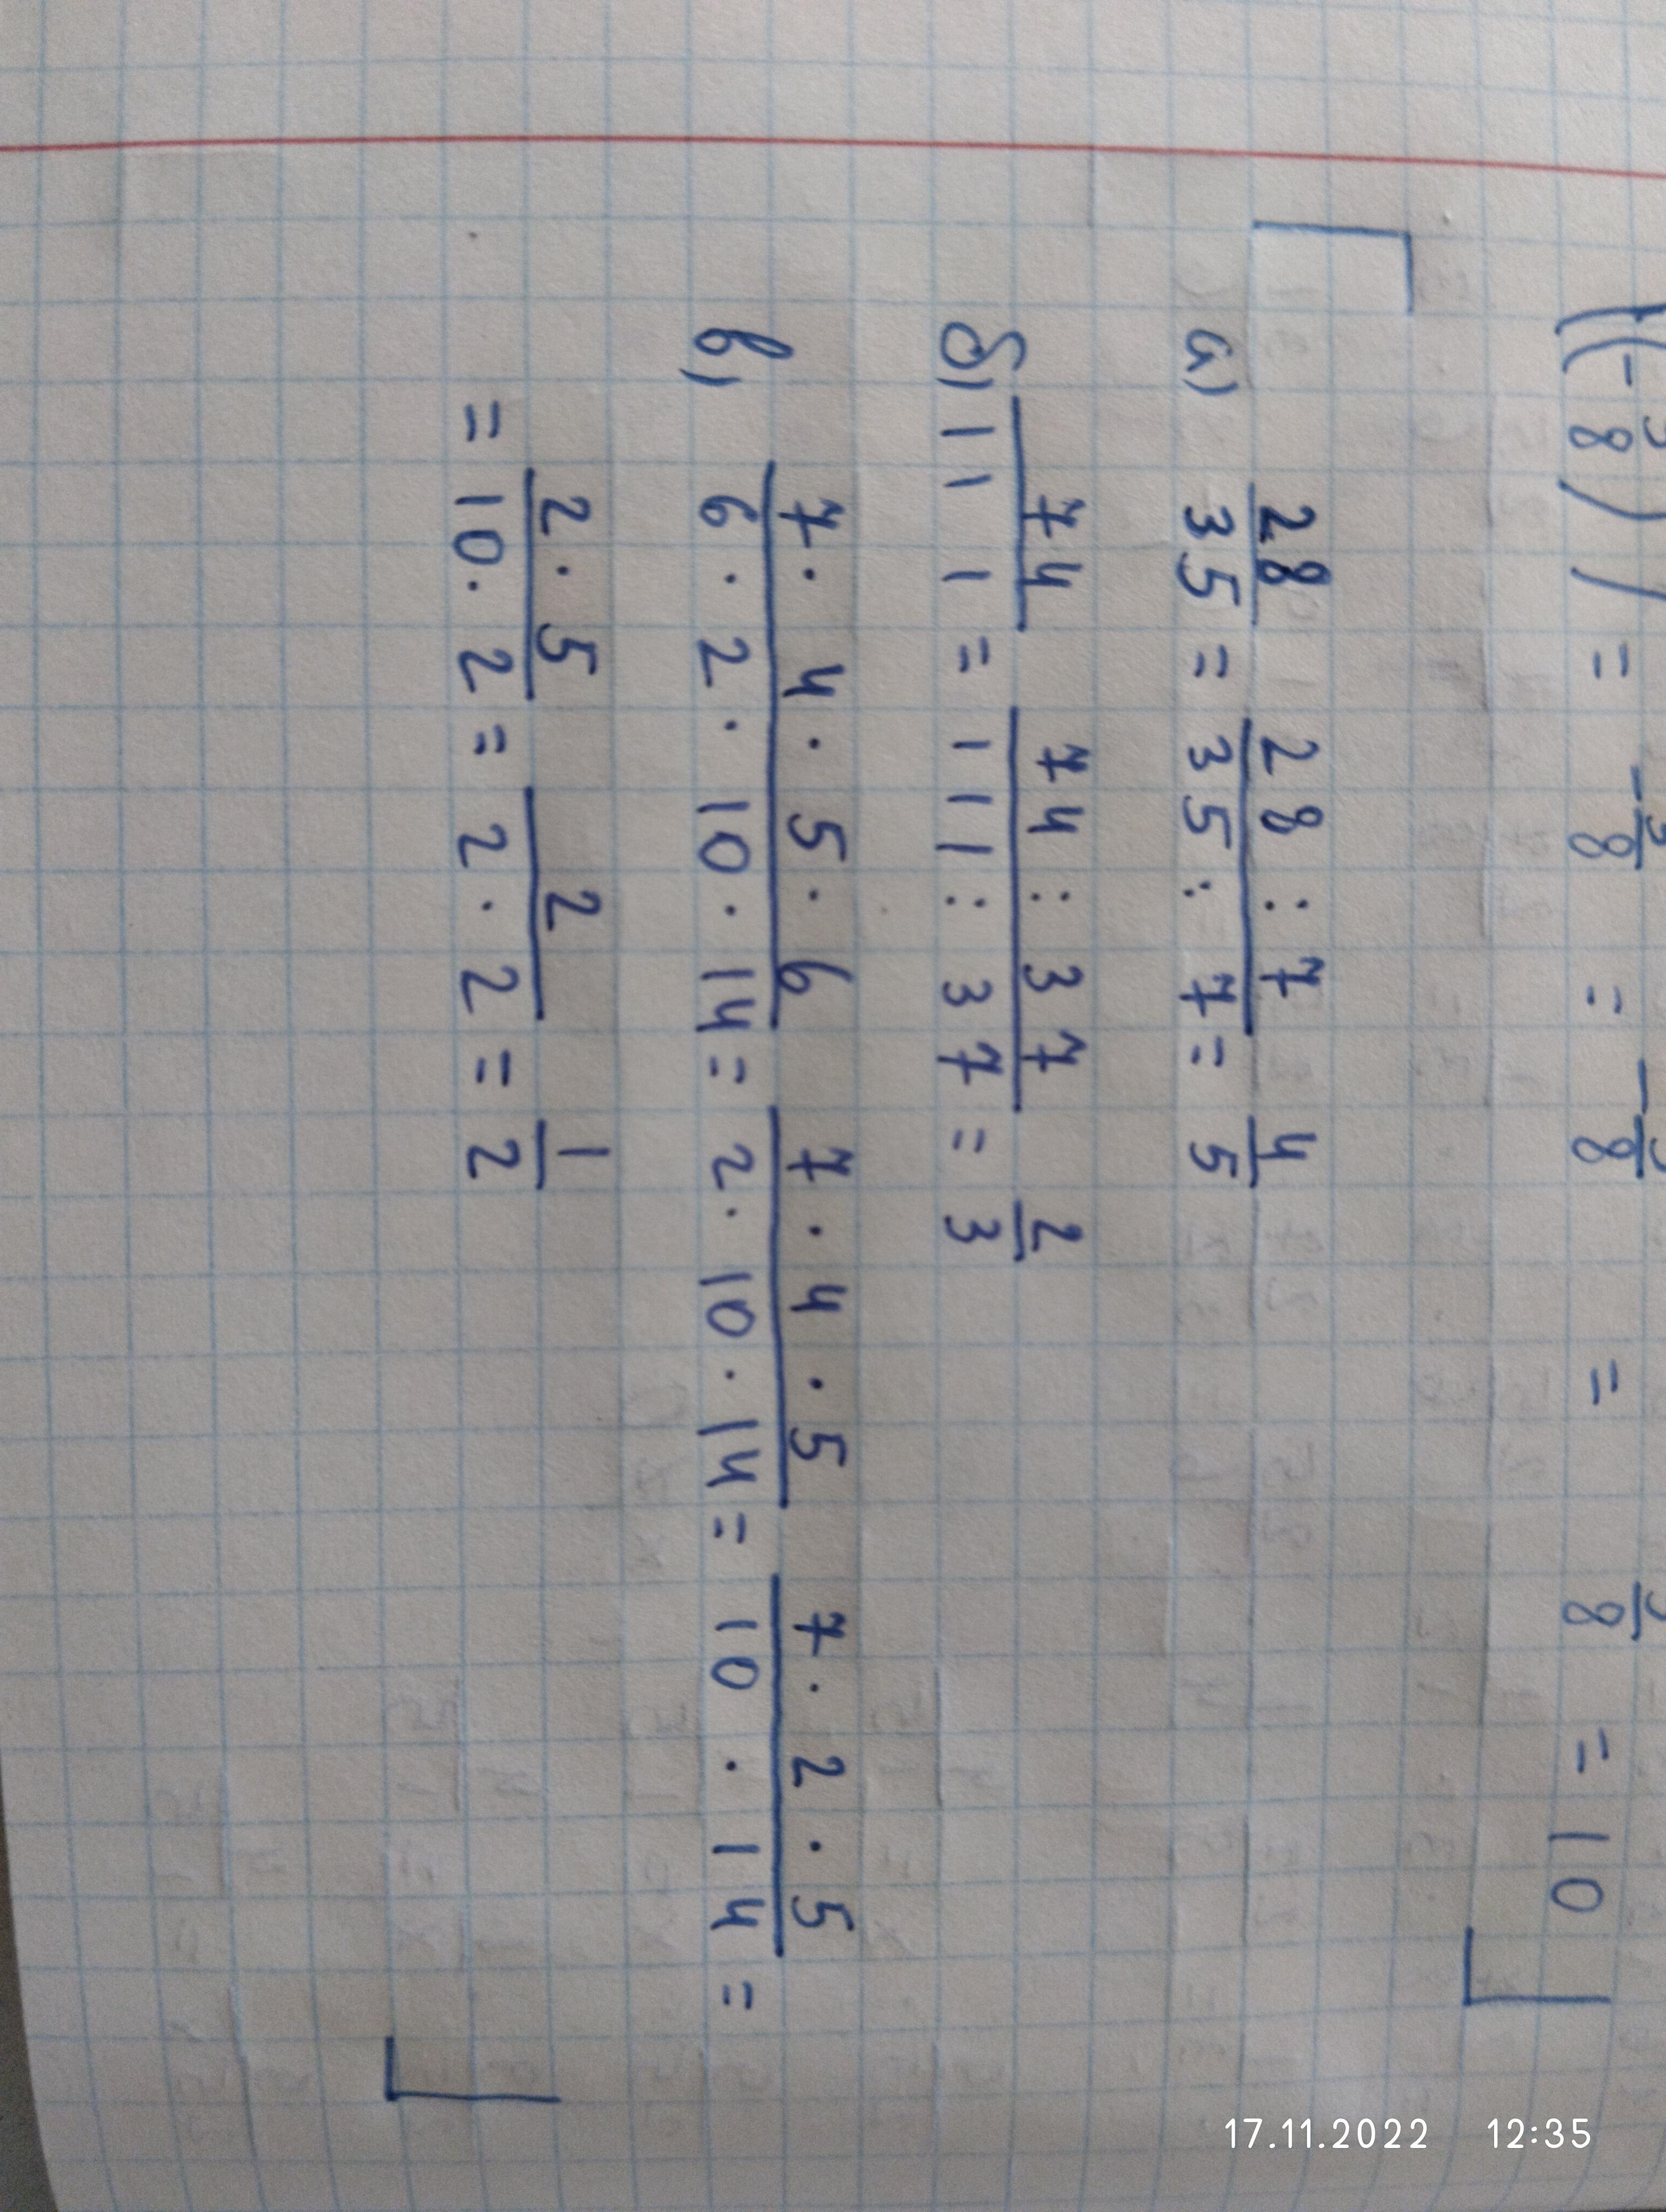 = -8 = -8 = 8 = 10
а) 28/35 = 28:7/35:7 = 4/5
б) 74/111 = 74:37/111:37 = 2/3
в) 7·4·5·6/6·2·10·14 = 7·4·5/2·10·14 = 7·2·5/10·14 =
= 2·5/10·2 = 2/2·2 = 1/2
17.11.2022 12:35